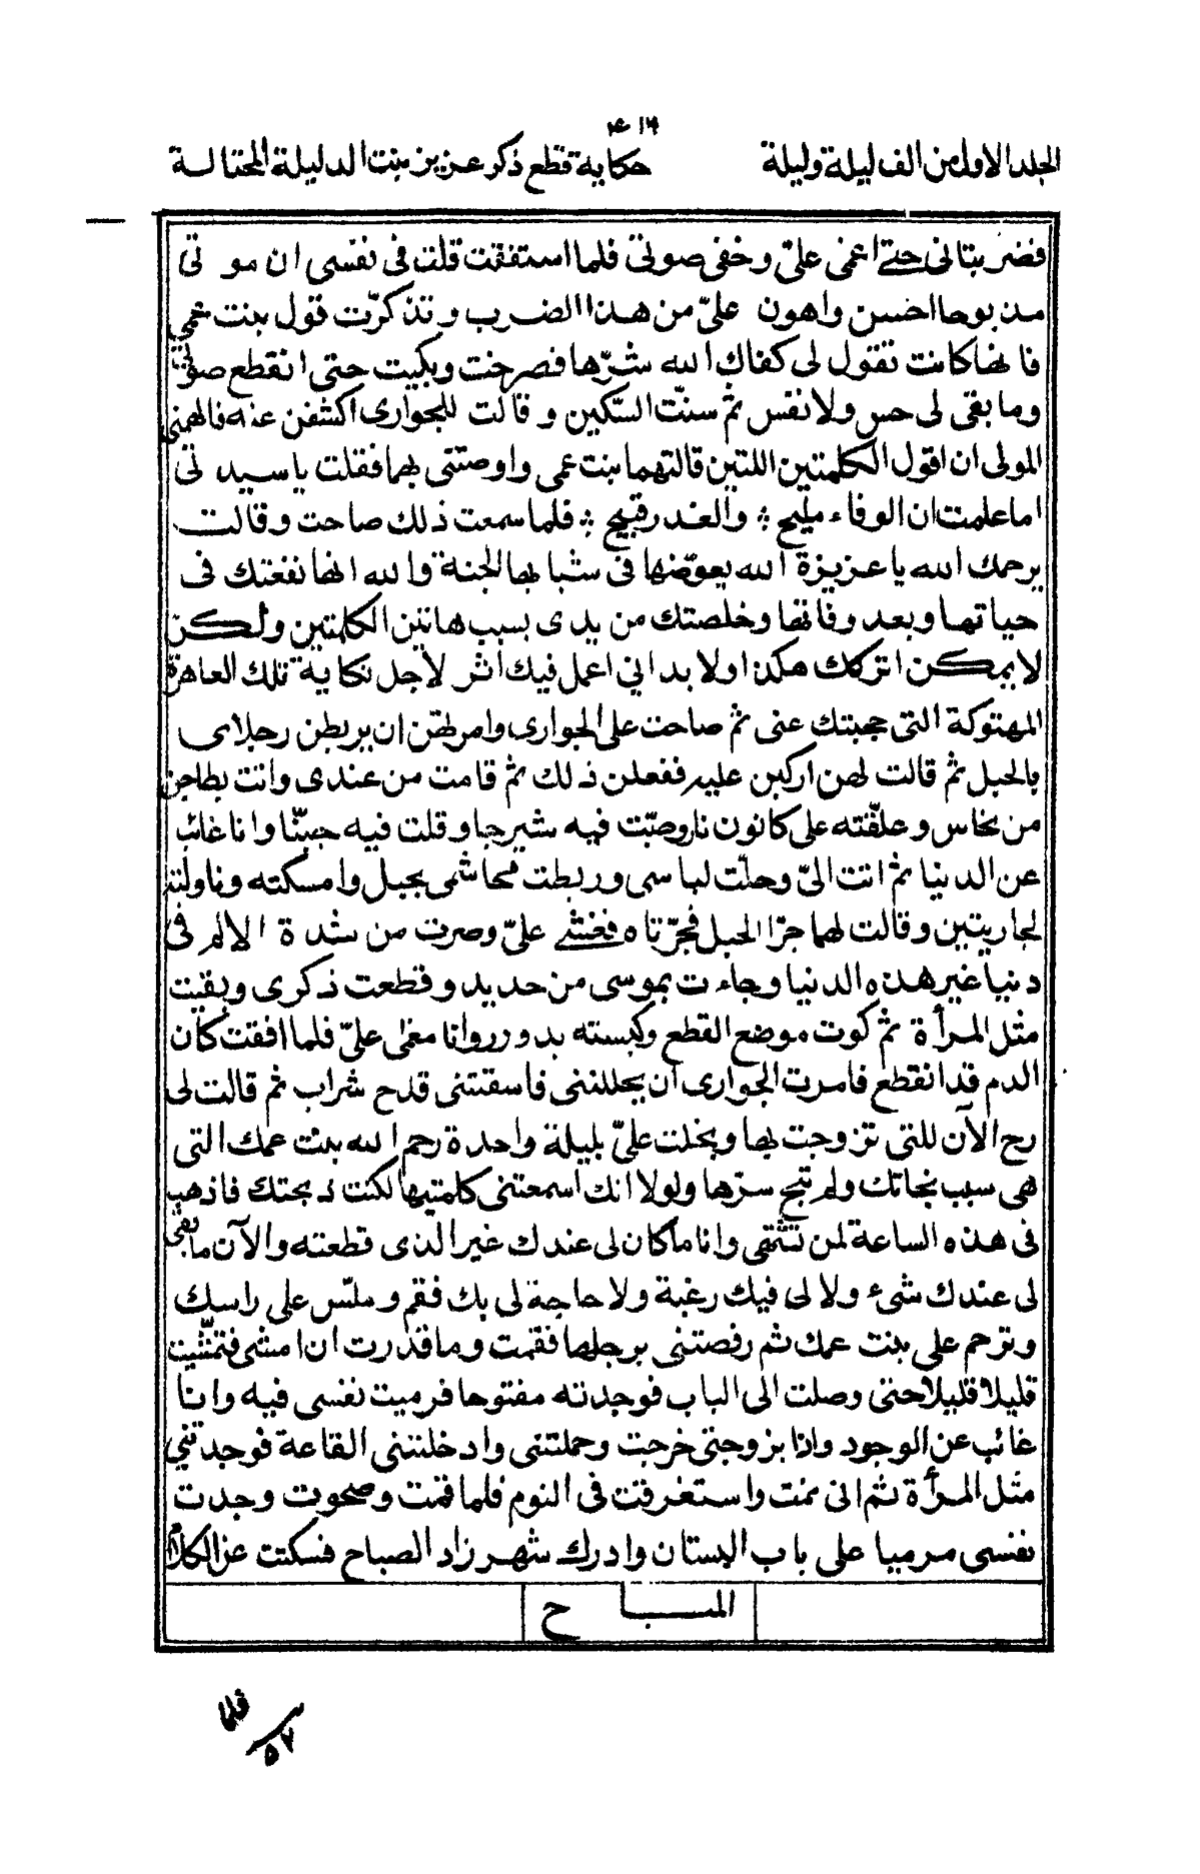 ٤١٦
الجلد الاول من الف ليلة وليلة
حكاية قطع ذكر عزيز بنت الدليلة المحتالة
فضربتانى حتے اغمى علىّ وخفى صوتى فلما استفقت قلت فى نفسى ان موتى
مذبوحا احسن واهون علىّ من هذا الضرب وتذكرّت قول بنت عمي
فانهاكانت تقول لى كفاك الله شرّها فصرخت وبكيت حتى انقطع صوتى
وما بقى لى حس ولا نفس ثم سنّت السّكين وقالت للجوارى اكشفن عنه فالهمنى
المولى ان اقول الكلمتين اللتين قالتهما بنت عمى واوصتنى بهما فقلت يا سيدتى
اما علمت ان الوفاء مليح ؞ والغدر قبيح ؞ فلما سمعت ذلك صاحت وقالت
يرحمك الله يا عزيزة الله يعوّضها فى شبابها الجنة والله انها نفعتك فى
حياتها وبعد وفاتها وخلصتك من يدى بسبب هاتين الكلمتين ولكن
لا يمكن اتركك هكذا ولا بد اني اعمل فيك اثر لاجل نكاية تلك العاهرة
المهتوكة التى حجبتك عنى ثم صاحت على الجوارى وامرتهن ان يربطن رجلاى
بالحبل ثم قالت لهن اركبن عليه ففعلن ذلك ثم قامت من عندى واتت بطاجن
من نحاس وعلقّته على كانون نار وصبّت فيه شيرجا وقلت فيه جبنّا وانا غائب
عن الدنيا ثم اتت الىّ وحلّت لباسى وربطت محاشمى بحبل وامسكته وناولته
لجاريتين وقالت لهما جرّا الحبل فجرّتاه فغشے علىّ وصرت من شدة الالم فى
دنيا غير هذه الدنيا وجاءت بموسى من حديد وقطعت ذكرى وبقيت
مثل المرأة ثم كوت موضع القطع وكبسته بدرور وانا مغمى علىّ فلما افقت كان
الدم قد انقطع فامرت الجوارى ان يحللننى فاسقتنى قدح شراب ثم قالت لى
رح الآن للتى تزوجت بها وبخلت علىّ بليلة واحدة رحم الله بنت عمك التى
هى سبب نجاتك ولم تبح سرّها ولولا انك اسمعتنى كلمتيها لكنت ذبحتك فاذهب
فى هذه الساعة لمن تشتهى وانا ماكان لى عندك غير الذى قطعته والآن ما بقى
لى عندك شىء ولا لى فيك رغبة ولا حاجة لى بك فقم وملّس على راسك
وترحم على بنت عمك ثم رفصتنى برجلها فقمت وما قدرت ان امشى فتمشّيت
قليلا قليلا حتى وصلت الى الباب فوجدته مفتوحا فرميت نفسى فيه وانا
غائب عن الوجود واذا بزوجتى خرجت وحملتنى وادخلتنى القاعة فوجدتني
مثل المرأة ثم انى نمت واستغرقت فى النوم فلما قمت وصحوت وجدت
نفسى مرميا على باب البستان وادرك شهر زاد الصباح فسكتت عن الكلام
المبـــاح
فلما
٥٧